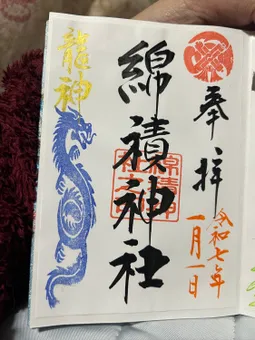 奉拝
令和七年
一月一日
綿積神社
龍神